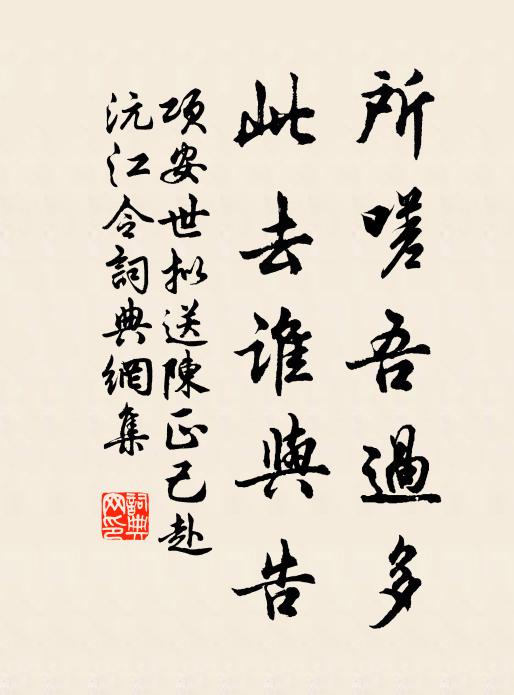 所嗟吾過多
此去誰與告
項安世拟送陳正己赴
沅江令詞典網集
詞典网印